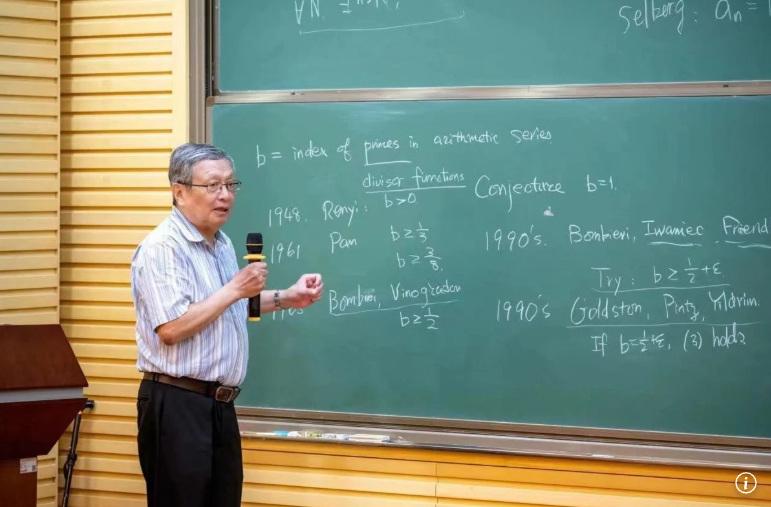 Selberg: an =
b = index of primes in arithmetic series
divisor functions
Conjecture b=1.
1948. Renyi: b>0
1961 Pan b≥1/3
b≥3/8.
Bombieri, Vinogradov
b≥1/2
1990's. Bombieri, Iwaniec, Friend
Try: b≥1/2+ε
1990's Goldston, Pintz, Yildirim.
If b=1/2+ε, (3) holds